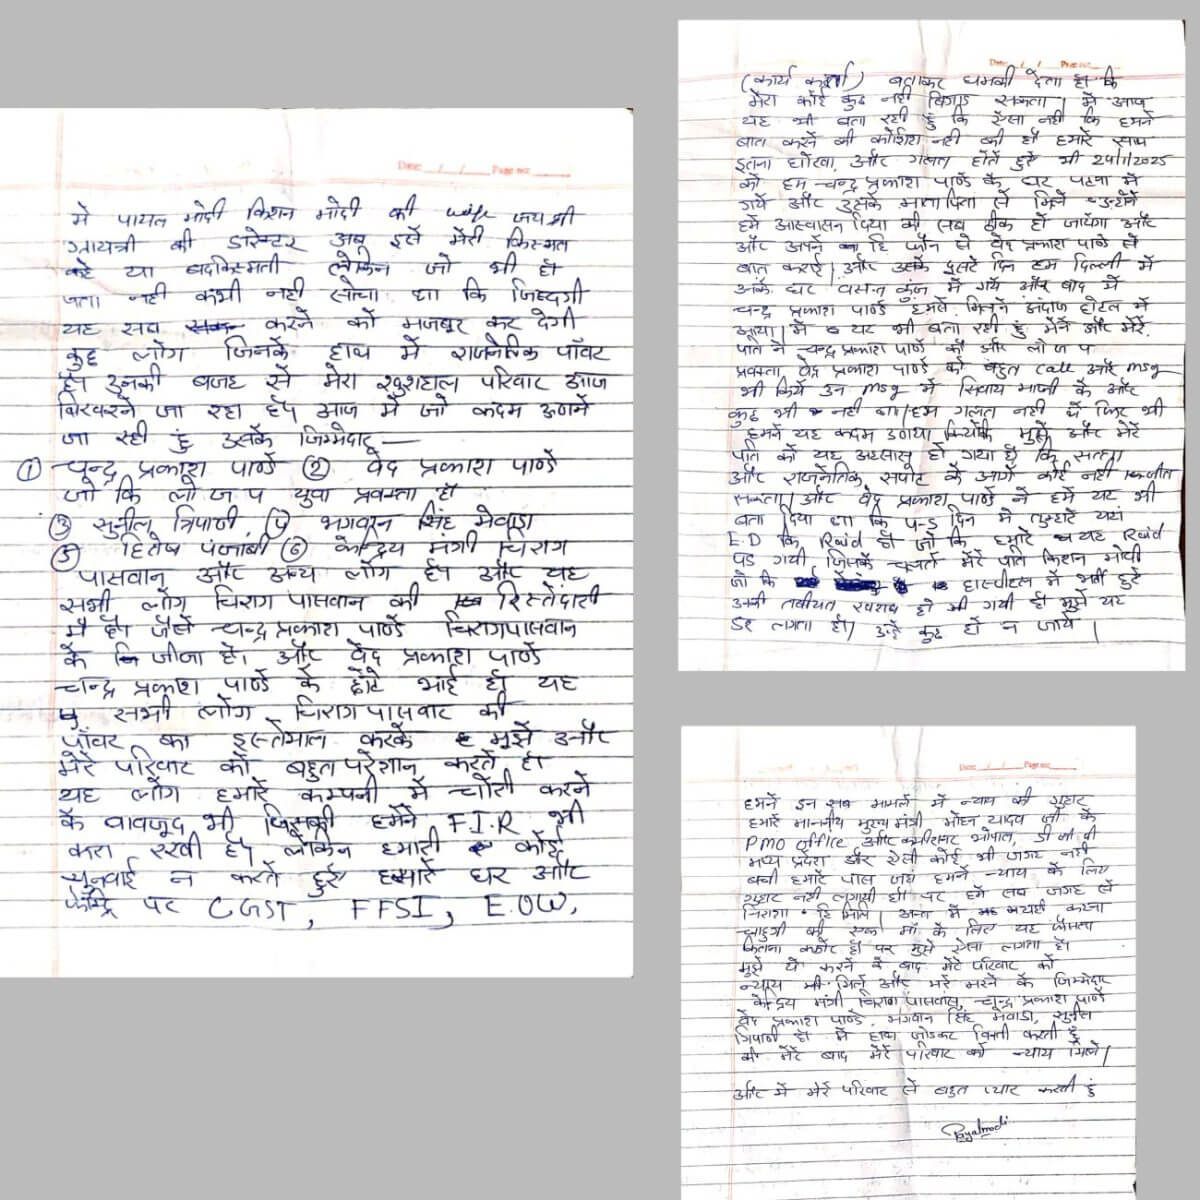 Date __/__/__ Page no ____
मे पायल मोदी किशन मोदी की wife जयश्री
गायत्री की डारेक्टर अब इसे मेरी किस्मत
कहे या बदकिस्मती लेकिन जो भी हो
पता नही कभी नही सोचा था कि जिन्दगी
यह सब करने को मजबूर कर देगी
कुछ लोग जिनके हाथ में राजनेतिक पॉवर
है उनकी वजह से मेरा खुशहाल परिवार आज
बिखरने जा रहा है। आज में जो कदम उठाने
जा रही हुं उसके जिम्मेदार —
① चन्द्र प्रकाश पाण्डे ② वेद प्रकाश पाण्डे
जो कि लो ज प युवा प्रवक्ता है
③ सुनील त्रिपाठी, ④ भगवान सिंह मेवाडा
⑤ हितेष पंजाबी ⑥ केन्द्रिय मंत्री चिराग
पासवान और अन्य लोग है। और यह
सभी लोग चिराग पासवान की रिस्तेदारी
मै है। जैसे चन्द्र प्रकाश पाण्डे चिराग पासवान
के जीजा है। और वेद प्रकाश पाण्डे
चन्द्र प्रकाश पाण्डे के छोटे भाई है। यह
सभी लोग चिराग पासवाट की
पॉवर का इस्तेमाल करके मुझे और
मेरे परिवार को बहुत परेशान करते है।
यह लोग हमारे कम्पनी में चोरी करने
के वावजूद भी जिसकी हमेने F.I.R भी
करा रखी है। लेकिन हमारी कोई
सुनवाई न करते हुए हमारे घर और
पर CGST, FFSI, E.OW,
Date __/__/__ Page no ____
(कार्य कर्ता) बताकर धमकी देता है कि
मेरा कोई कुछ नही बिगाड सकता। में आप
यह भी बता रही हुं कि ऐसा नही कि हमने
बात करने की कोशिश नही की है हमारे साथ
इतना धोखा, और गलत होते हुए भी 24/1/2025
को हम चन्द्र प्रकाश पाण्डे के घर पटना में
गये और उसके माता पिता से मिले उन्होने
हमे आस्वासन दिया की सब ठीक हो जायेगा और
और अपने हि फोन से वेद प्रकाश पाण्डे से
बात कराई। और उसके दुसरे दिन हम दिल्ली में
उनके घर वसन्त कुंज में गये और बाद में
चन्द्र प्रकाश पाण्डे हमसे मिलने अंदाज होटल में
आया। में यह भी बता रही हुं मेने और मेरे
पति ने चन्द्र प्रकाश पाण्डे को और लो ज प
प्रवक्ता, वेद प्रकाश पाण्डे को बहुत call और msg
भी किये उन msg में सिवाय माफी के और
कुछ भी नही था। हम गलत नही थे फिर भी
हमने यह कदम उठाया क्योकि मुझे और मेरे
पति को यह अहसास हो गया है कि सत्ता
और राजनेतिक सपोट के आगे कोई नही जीत
सकता। और वेद प्रकाश पाण्डे ने हमें यह भी
बता दिया था कि 4-5 दिन में तुम्हारे यहां
E.D कि Raid है जो कि हमारे यह Raid
पड गयी जिसके चलते मेरे पति किशन मोदी
जो कि हास्पीटल में भर्ती हुए
उनकी तबीयत खराब हो भी गयी है मुझे यह
डर लगता है। उन्हे कुछ हो न जाये।
Date __/__/__ Page no ____
हमने इन सब मामले में न्याय की गुहार
हमारे माननीय मुख्य मंत्री मोहन यादव जी के
PMO office और कमीश्नर भोपाल, डी जी पी
मध्य प्रदेश और ऐसी कोई भी जगह नही
बची हमारे पास जहां हमने न्याय के लिए
गुहार नही लगायी हो। पर हमे सब जगह से
निराशा हि मिली। अन्त में यही कहना
चाहुगी की एक माँ के लिए यह फैसला
कितना कठोर है पर मुझे ऐसा लगता है।
मुझे ये करने के बाद मेरे परिवार को
न्याय भी मिले और मेरे मरने के जिम्मेदार
केन्द्रिय मंत्री चिराग पासवान, चन्द्र प्रकाश पाण्डे
वेद प्रकाश पाण्डे, भगवान सिंह मेवाडा, सुनील
त्रिपाठी है में हाथ जोडकर विनती करती हुं
की मेरे बाद मेरे परिवार को न्याय मिले।
और में मेरे परिवार से बहुत प्यार करती हुं
Payalmodi